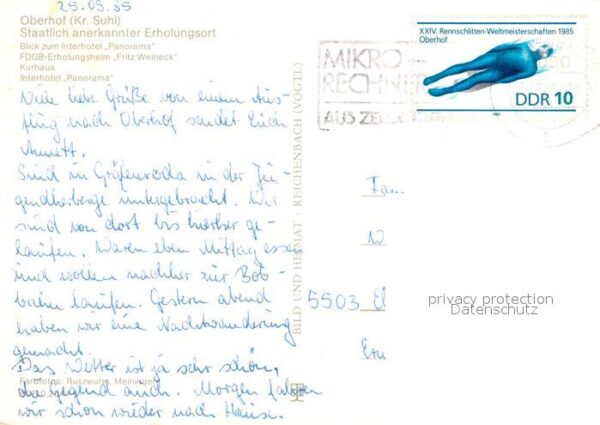 25.05.85
Oberhof (Kr. Suhl)
Staatlich anerkannter Erholungsort
Blick zum Interhotel „Panorama"
FDGB-Erholungsheim „Fritz Weineck"
Kurhaus
Interhotel „Panorama"
Viele liebe Grüße von einem Aus-
flug nach Oberhof sendet Euch
Annett.
Sind in Gräfenroda in der Ju-
gendherberge untergebracht. Wir
sind von dort bis hierher ge-
laufen. Waren eben Mittag essen
und wollen nachher zur Bob-
bahn laufen. Gestern abend
haben wir eine Nachtwanderung
gemacht.
Das Wetter ist ja sehr schön,
die Gegend auch. Morgen fahren
wir schon wieder nach Hause.
Farbfotos: Ruszwurm, Meiningen
BILD UND HEIMAT · REICHENBACH (VOGTL)
MIKRO-
RECHNER
AUS ZE
XXIV. Rennschlitten-Weltmeisterschaften 1985
Oberhof
DDR 10
Fam.
5503
privacy protection
Datenschutz